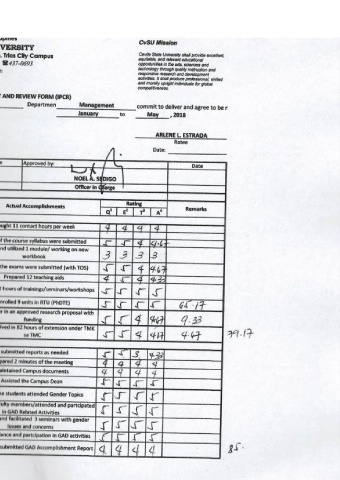 CvSU Mission
VERSITY
Trias City Campus
☎437-0693
Cavite State University shall provide excellent,
equitable, and relevant educational
opportunities in the arts, sciences and
technology through quality instruction and
responsive research and development
activities. It shall produce professional, skilled
and morally upright individuals for global
competitiveness.
AND REVIEW FORM (IPCR)
Departmen Management commit to deliver and agree to be r
January to May , 2018
ARLENE L. ESTRADA
Ratee
Date:
Approved by: Date
NOEL A. SEDIGO
Officer in Charge
Actual Accomplishments Rating Remarks
Q¹ E² T³ A⁴
ught 11 contact hours per week 4 4 4 4
of the course syllabus were submitted 5 5 4 4.67
and utilized 1 module/ working on new
workbook 3 3 3 3
the exams were submitted (with TOS) 5 5 4 4.67
Prepared 12 teaching aids 4 5 4 4.33
hours of trainings/seminars/workshops 5 5 5 5
nrolled 9 units in RTU (PHDTE) 5 5 5 5 65.17
er in an approved research proposal with
funding 5 5 4 4.67 9.33
lved in 82 hours of extension under TMK
se TMC 5 5 4 4.67 4.67 79.17
submitted reports as needed 5 5 3 4.33
pared 2 minutes of the meeting 4 4 4 4
aintained Campus documents 4 4 4 4
Assisted the Campus Dean 5 5 5 5
he students attended Gender Topics 5 5 5 5
ulty members/attended and participated
in GAD Related Activities 5 5 5 5
and facilitated 3 seminars with gender
issues and concerns 5 5 5 5
ance and participation in GAD activities 5 5 5 5
submitted GAD Accomplishment Report 4 4 4 4 85.